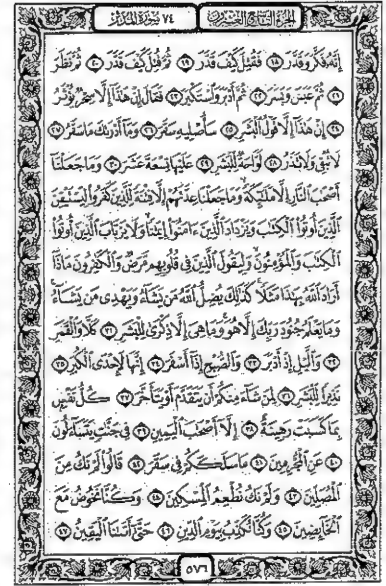 الجزء التاسع والعشرون ٧٤ سورة المدثر
إِنَّهُ فَكَّرَ وَقَدَّرَ ١٨ فَقُتِلَ كَيْفَ قَدَّرَ ١٩ ثُمَّ قُتِلَ كَيْفَ قَدَّرَ ٢٠ ثُمَّ نَظَرَ
٢١ ثُمَّ عَبَسَ وَبَسَرَ ٢٢ ثُمَّ أَدْبَرَ وَٱسْتَكْبَرَ ٢٣ فَقَالَ إِنْ هَٰذَآ إِلَّا سِحْرٌ يُؤْثَرُ
٢٤ إِنْ هَٰذَآ إِلَّا قَوْلُ ٱلْبَشَرِ ٢٥ سَأُصْلِيهِ سَقَرَ ٢٦ وَمَآ أَدْرَىٰكَ مَا سَقَرُ ٢٧
لَا تُبْقِى وَلَا تَذَرُ ٢٨ لَوَّاحَةٌ لِّلْبَشَرِ ٢٩ عَلَيْهَا تِسْعَةَ عَشَرَ ٣٠ وَمَا جَعَلْنَآ
أَصْحَٰبَ ٱلنَّارِ إِلَّا مَلَٰٓئِكَةً وَمَا جَعَلْنَا عِدَّتَهُمْ إِلَّا فِتْنَةً لِّلَّذِينَ كَفَرُوا۟ لِيَسْتَيْقِنَ
ٱلَّذِينَ أُوتُوا۟ ٱلْكِتَٰبَ وَيَزْدَادَ ٱلَّذِينَ ءَامَنُوٓا۟ إِيمَٰنًا وَلَا يَرْتَابَ ٱلَّذِينَ أُوتُوا۟
ٱلْكِتَٰبَ وَٱلْمُؤْمِنُونَ وَلِيَقُولَ ٱلَّذِينَ فِى قُلُوبِهِم مَّرَضٌ وَٱلْكَٰفِرُونَ مَاذَآ
أَرَادَ ٱللَّهُ بِهَٰذَا مَثَلًا كَذَٰلِكَ يُضِلُّ ٱللَّهُ مَن يَشَآءُ وَيَهْدِى مَن يَشَآءُ
وَمَا يَعْلَمُ جُنُودَ رَبِّكَ إِلَّا هُوَ وَمَا هِىَ إِلَّا ذِكْرَىٰ لِلْبَشَرِ ٣١ كَلَّا وَٱلْقَمَرِ
٣٢ وَٱلَّيْلِ إِذْ أَدْبَرَ ٣٣ وَٱلصُّبْحِ إِذَآ أَسْفَرَ ٣٤ إِنَّهَا لَإِحْدَى ٱلْكُبَرِ ٣٥
نَذِيرًا لِّلْبَشَرِ ٣٦ لِمَن شَآءَ مِنكُمْ أَن يَتَقَدَّمَ أَوْ يَتَأَخَّرَ ٣٧ كُلُّ نَفْسٍۭ
بِمَا كَسَبَتْ رَهِينَةٌ ٣٨ إِلَّآ أَصْحَٰبَ ٱلْيَمِينِ ٣٩ فِى جَنَّٰتٍ يَتَسَآءَلُونَ
٤٠ عَنِ ٱلْمُجْرِمِينَ ٤١ مَا سَلَكَكُمْ فِى سَقَرَ ٤٢ قَالُوا۟ لَمْ نَكُ مِنَ
ٱلْمُصَلِّينَ ٤٣ وَلَمْ نَكُ نُطْعِمُ ٱلْمِسْكِينَ ٤٤ وَكُنَّا نَخُوضُ مَعَ
ٱلْخَآئِضِينَ ٤٥ وَكُنَّا نُكَذِّبُ بِيَوْمِ ٱلدِّينِ ٤٦ حَتَّىٰٓ أَتَىٰنَا ٱلْيَقِينُ ٤٧
٥٧٦